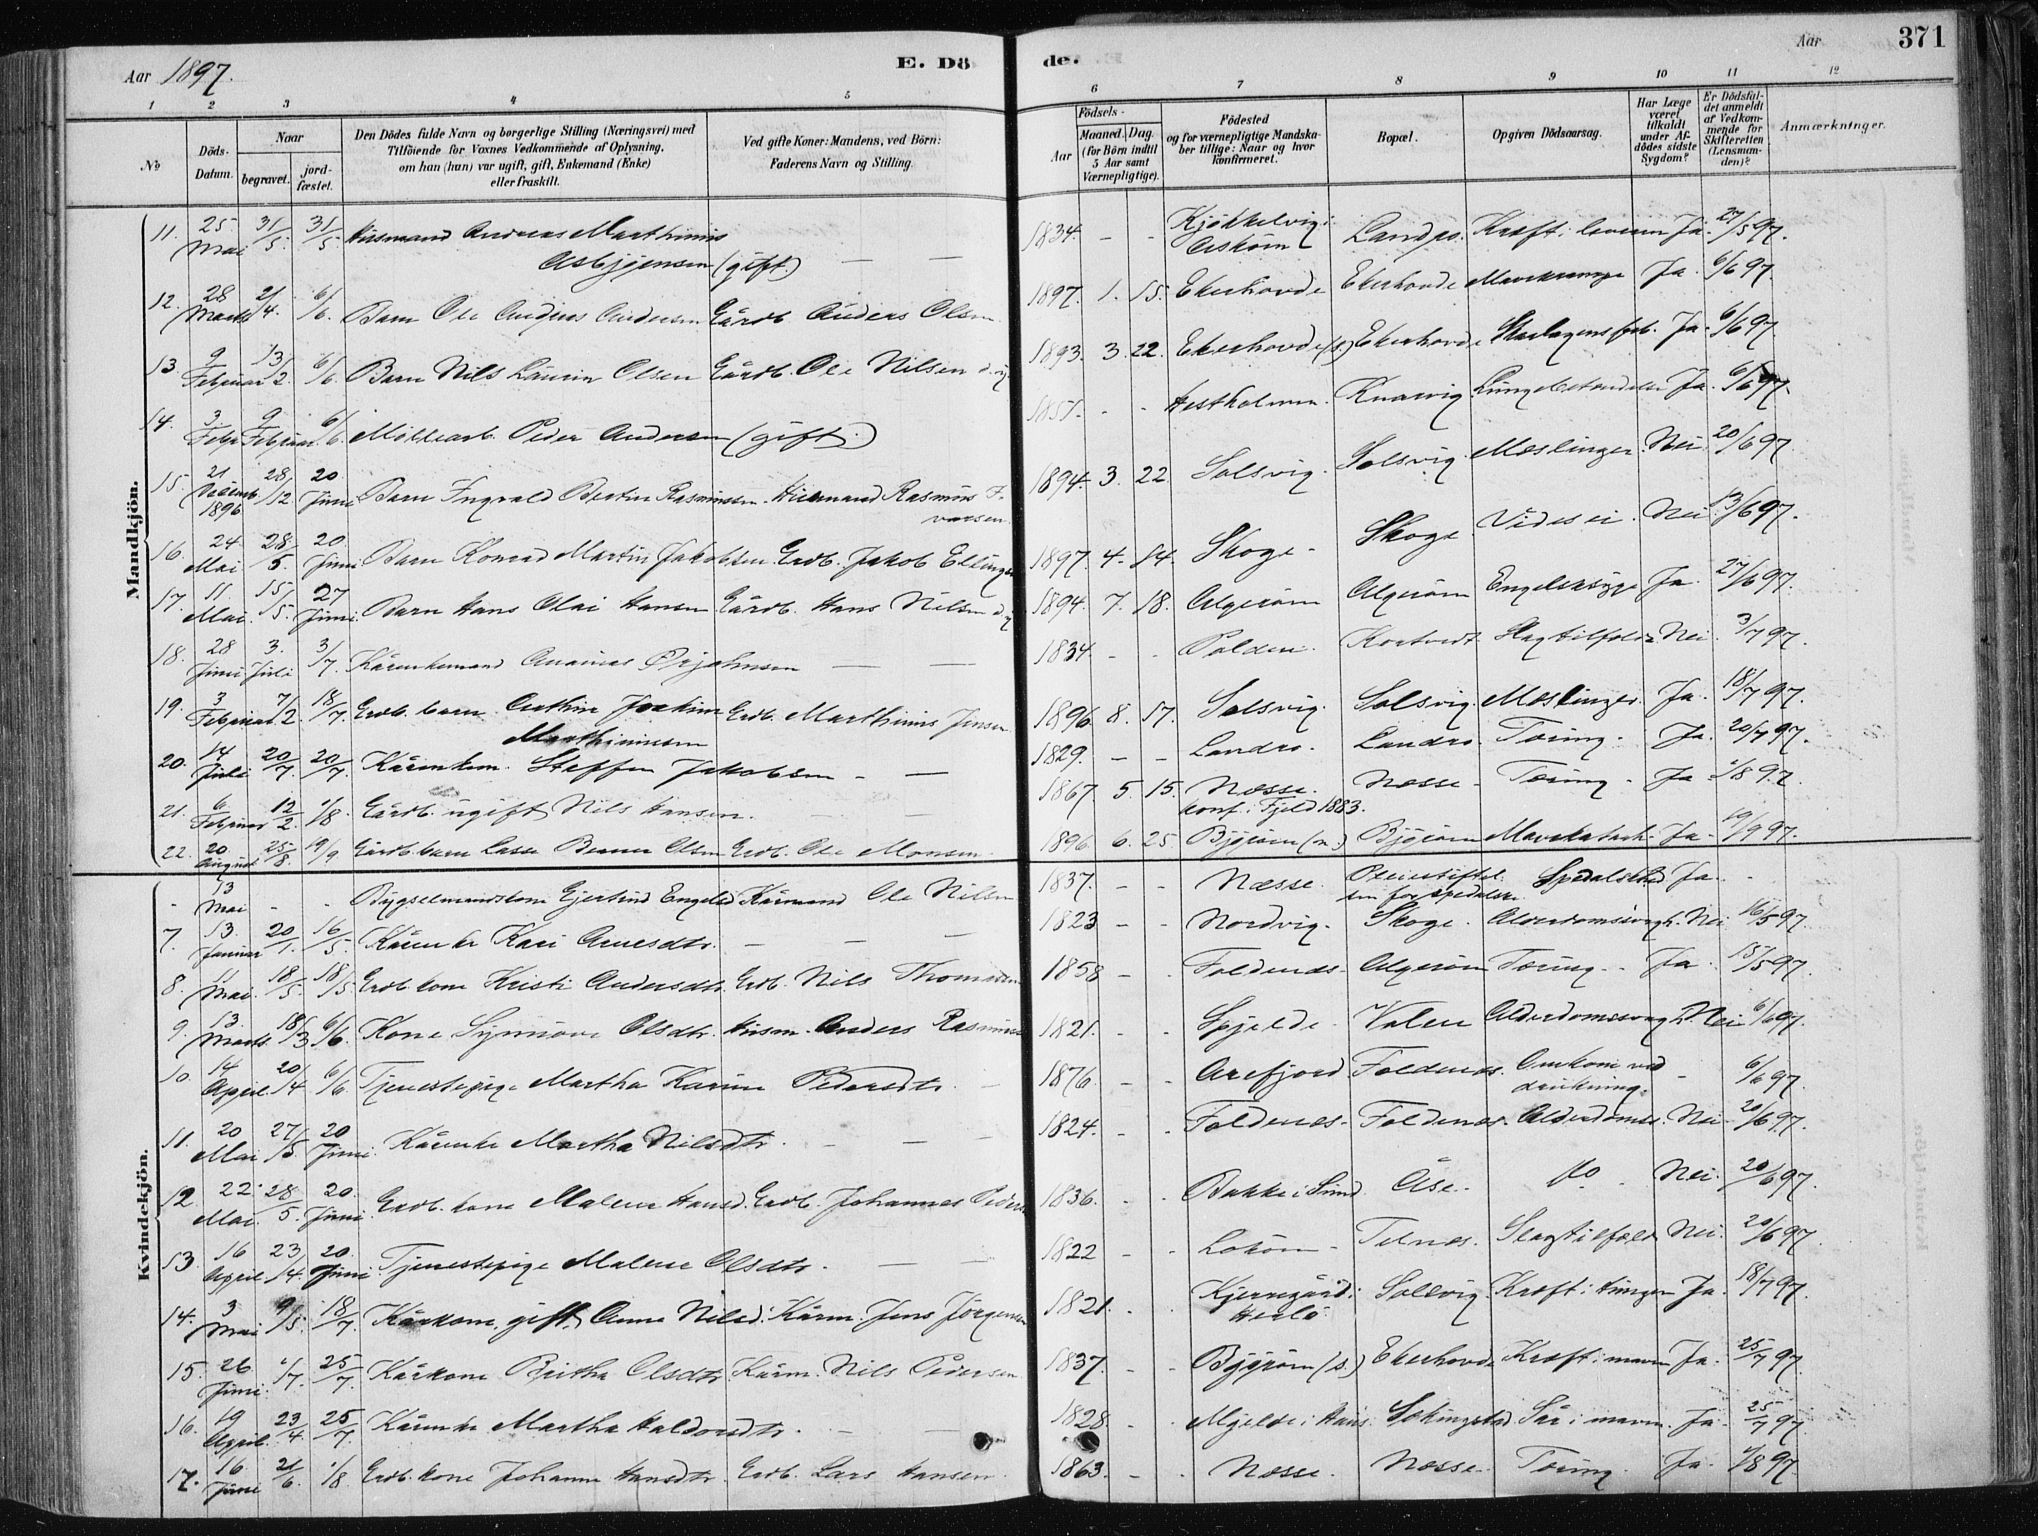 Aar 1897.
E. Dö
de.
Aar
371
1 2 3 4 5 6 7 8 9 10 11 12
No
Döds-Datum.
Naar
begravet.
jord-fæstet.
Den Dödes fulde Navn og borgerlige Stilling (Næringsvei) med
Tilföiende for Voxnes Vedkommende af Oplysning,
om han (hun) var ugift, gift, Enkemand (Enke)
eller fraskilt.
Ved gifte Koner: Mandens, ved Börn:
Faderens Navn og Stilling.
Födsels-
Aar
Maaned. Dag.
(for Börn indtil
5 Aar samt
Værnepligtige).
Födested
og for værnepligtige Mandska-
ber tillige: Naar og hvor
konfirmeret.
Bopæl.
Opgiven Dödsaarsag.
Har Læge
været
tilkaldt
under Af-
dödes sidste
Sygdom?
Er Dödsfal-
det anmeldt
af Vedkom-
mende for
Skifteretten
(Lensman-
den)?
Anmærkninger.
Mandkjön.
11. 25 Mai 31/5 31/5 Husmand Andreas Marthinus Asbjørnsen (gift.) — — 1834. - - Kjøkkelvig i Askøen Landro. Kræft i leveren Ja. 27/5 97.
12. 28 Marts 2/4. 6/6. Barn Ole Andreas Andersen Gårdb. Anders Olsen 1897. 1. 15. Ekerhovde Ekerhovde Mavekrampe Ja. 6/6 97.
13. 9 Februar 13/2. 6/6. Barn Nils Laurin Olsen Gårdb. Ole Nilsen d.y. 1893. 3. 22. Ekerhovde (s.) Ekerhovde Skarlagensfeb. Ja. 6/6 97.
14. 3 Febr 9 Februar 6/6. Møllearb. Peder Andersen (gift.) 1851. - - Hestholmen. Knarvig Lungebetændelse Ja. 6/6 97.
15. 21 Decemb. 1896 28/12 20 Juni Barn Ingvald Bertin Rasmussen. Husmand Rasmus 1894. 3. 22 Solsvig. Solsvig. Meslinger. Nei. 20/6 97.
16. 24 Mai 28/5. 20 Juni Barn Konrad Martin Jakobsen. Grdb. Jakob Ellingsen 1897. 4. 14. Skoge. Skoge. Vides ei. Nei. 13/6 97.
17. 11. Mai. 15/5. 27 Juni. Barn Hans Olai Hansen Gårdb. Hans Nilsen d.y 1894. 7. 18. Algerøen Algerøen Engelsksyge Ja. 27/6 97.
18. 28 Juni 3. Juli 3/7. Kårenkemand Ananias Ørjahnsen — — 1834. - - Polden. Kortvedt Slagtilfælde Nei. 3/7 97.
19. 3 Februar 7/2. 18/7. Grdb. barn Anthon Joakim Marthinussen Grdb. Marthinus Jensen 1896. 8. 17. Solsvig. Solsvig. Meslinger. Ja. 18/7 97.
20. 14 Juli 20/7. 20/7. Kårenkem. Steffen Jakobsen - — 1829. — — Landro. Landro. Tæring. Ja. 20/7 97.
21. 6 Februar 12/2. 1/8. Gårdb. ugift Nils Hansen. 1867. 5. 15. Næsse. konf. i Fjeld 1883. Næsse. Tæring. Ja 1/8 97.
22. 20 August 25/8. 19/9 Gårdb. barn Lasse Berner Olsen Grdb. Ole Monsen 1896. 6. 25. Bjørøen (n.) Bjørøen Mavekatarh. Ja. 19/9 97.
Kvindekjön.
- 13 Mai - - Bygselmandskone Gjertrud Engels Kårmand Ole Nilsen 1837. - - Næsse. Pleiestiftelsen for spedalske Spedalskhed Ja. -
7. 13. Januar 20/1. 16/5. Kårenke Kari Arnesdtr. — — — 1823 - - Nordvig. Skoge. Alderdomssvagh. Nei 16/5 97.
8. 11 Mai. 18/5. 18/5 Grdb. kone Kristi Andersdtr. Grdb. Nils Thomassen 1858 - - Foldenæs. Algerøen Tæring. Ja. 18/5 97.
9. 13. Marts. 18/3 6/6. Kone Synnøve Olsdtr. Husm. Anders Rasmussen 1821. - - Spjelde. Valen Alderdomssvagh. Nei 6/6 97.
10. 14 April. 20/4 6/6. Tjenestepige Martha Karine Pedersdtr. - 1876. - - Arefjord Foldenæs. Omkom ved drukning. - 6/6 97.
11. 20 Mai 27/5. 20 Juni Kårenke Martha Nilsdtr. - — — 1824. - - Foldenæs. Foldenæs. Alderdomss. Nei. 20/6 97.
12. 22. Mai. 28/5. 20. Juni. Grdb. kone Malene Hansd. Grdb. Johannes Peders 1836. - - Bakke i Sund Åse. do. Nei. 20/6 97.
13. 16 April 23/4 20. Juni Tjenestepige Malene Olsdtr. — — 1822 - - Lokøen. Telnæs. Slagtilfæld Nei. 20/6 97.
14. 3 Mai 9/5. 18/7. Kårkone, gift, Anne Nilsd. Kårm. Jens Jörgensen 1821. - - Kjernegård i Herlö. Sollsvig Kræft i tungen Ja. 18/7 97
15. 26 Juni. 1/7. 25/7. Kårkone Britha Olsdtr Kårm. Nils Pedersen 1837. - - Bjørøen (s.) Ekerhovde Kræft i maven Ja. 25/7 97.
16. 19 April. 23/4 25/7. Kårenke Martha Haldorsdtr. - - 1828. - - Mjelde i Haus. Sekingstad Sår i maven. Ja. 25/7 97.
17. 16 Juni 21/6. 1/8 Grdb. kone Johanne Hansdtr. Grdb. Lars Hansen. 1863. - - Næsse. Næsse. Tæring. Ja. 1/8 97.